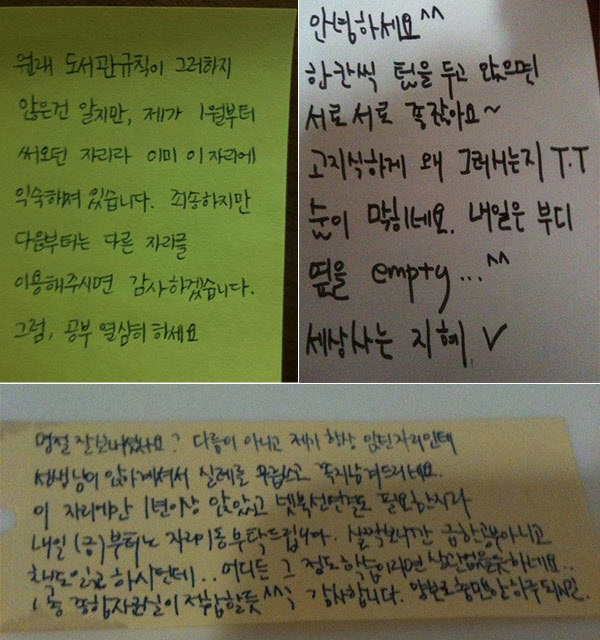 원래 도서관규칙이 그러하지
않은건 알지만, 제가 1월부터
써오던 자리라 이미 이 자리에
익숙해져 있습니다. 죄송하지만
다음부터는 다른 자리를
이용해주시면 감사하겠습니다.
그럼, 공부 열심히 하세요
안녕하세요^^
한칸씩 텀을 두고 앉으면
서로서로 좋잖아요~
고지식하게 왜 그러시는지 T.T
숨이 막히네요. 내일은 부디
옆을 empty...^^
세상사는 지혜 V
명절 잘보내셨나요? 다름이 아니고 제가 항상 앉던자리인데
선생님이 앉아계셔서 실례를 무릅쓰고 쪽지남겨드리네요.
이 자리에만 1년이상 앉았고 넷북선연결도 필요한지라
내일 (금)부터는 자리이동부탁드립니다. 살짝보니깐 급한공부아니고
책도읽고 하시던데.. 어디든 그 정도학습이라면 상관없을듯하네요..
1층 종합자료실이 적합할듯^^; 감사합니다.